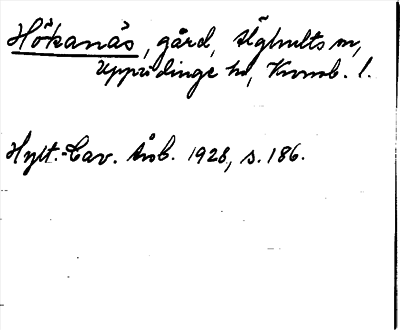 Hökanäs, gård, Älghults sn,
Uppvidinge hd, Kronob. l.
Hylt.-Cav. årsb. 1928, s. 186.